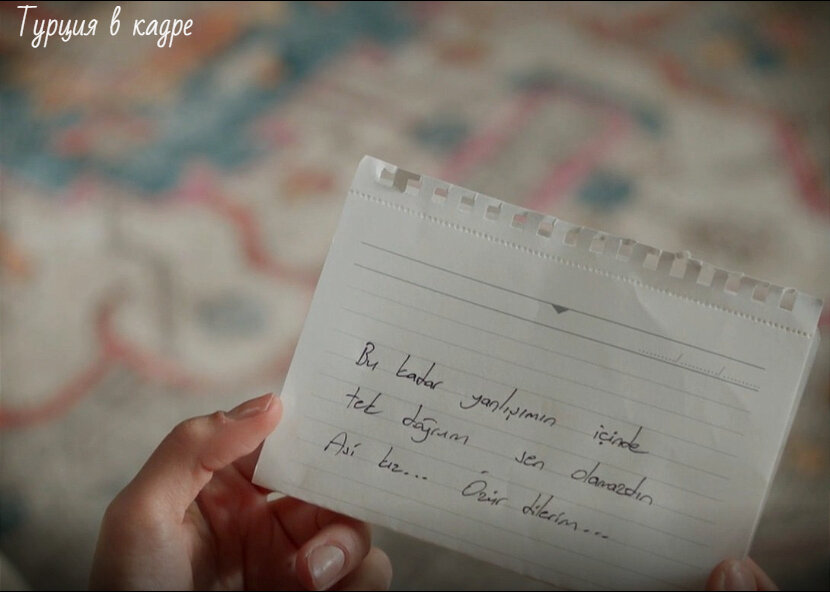 Турция в кадре
Bu kadar yanlışımın içinde
tek doğrum sen olamazdın
Asi kız... Özür dilerim...